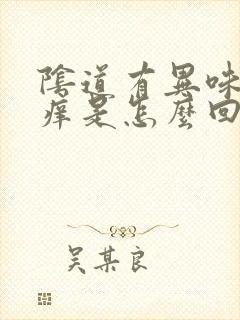 陰道有異味
痒是怎麼回
吴某良